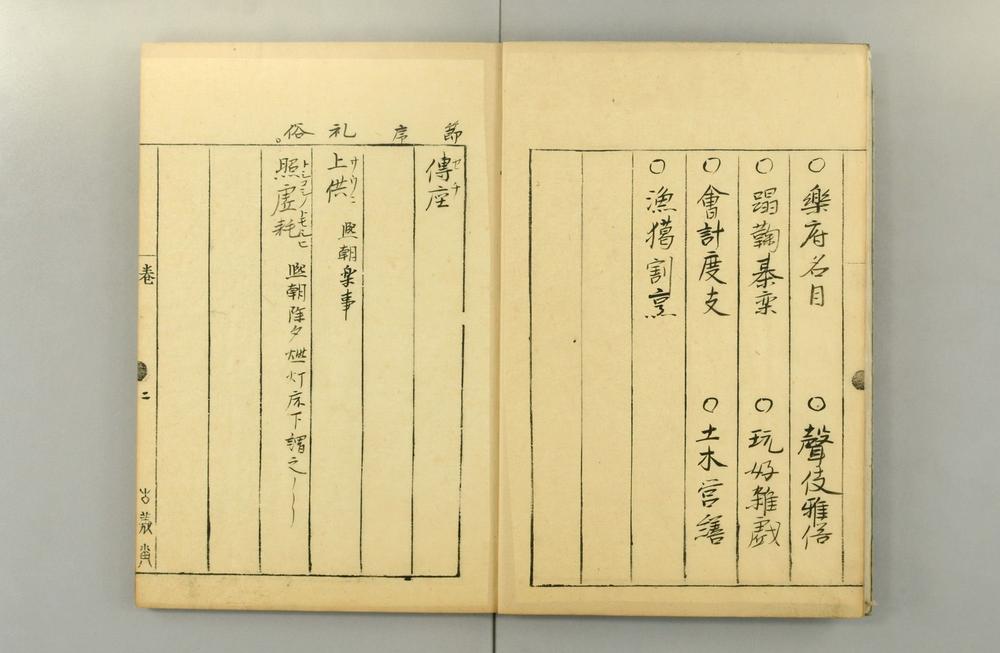 ○樂府名目 ○聲伎雅俗
○蹋鞠棊 ○玩好雜戯
○會計度支 ○土木営繕
○漁獦割烹
節序 礼俗
傳座 セチ
上供 熈朝楽事
照虚耗 熈朝除夕燃灯床下謂之〱
巻
二